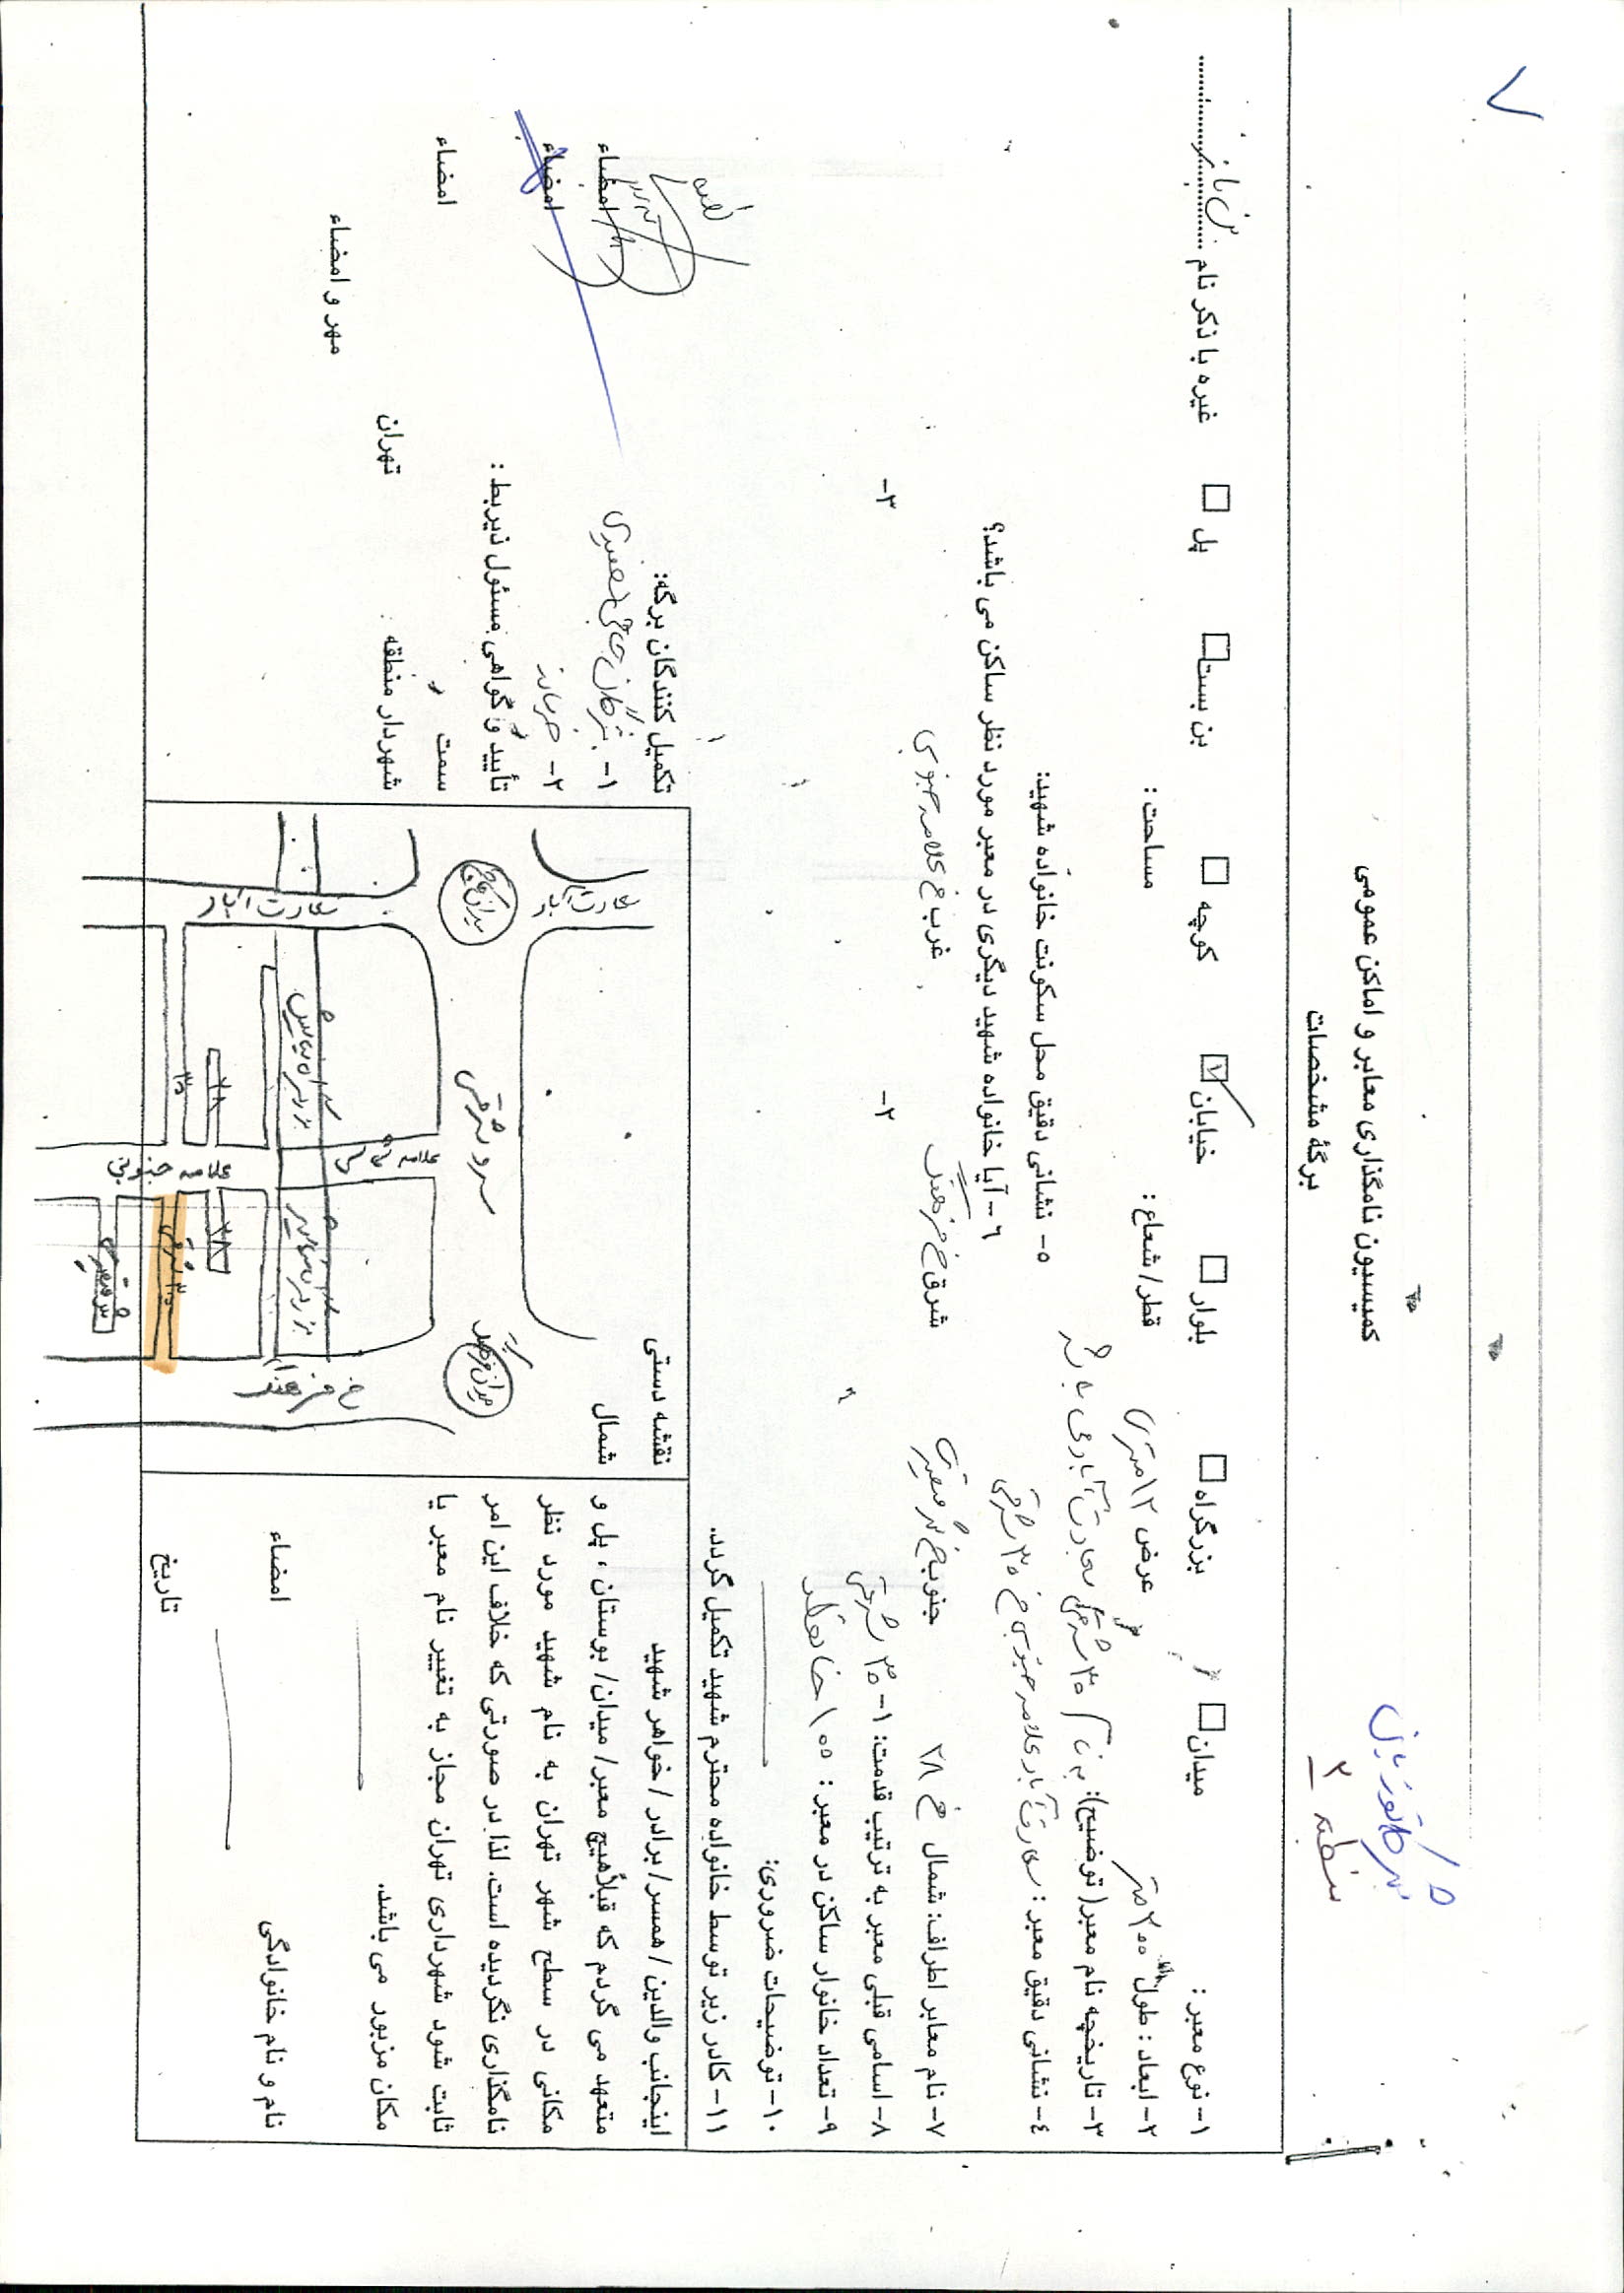 ۷
منطقه ۲
کمیسیون نامگذاری معابر و اماکن عمومی
برگهٔ مشخصات
۱- نوع معبر : میدان □ بزرگراه □ بلوار □ خیابان ☑ کوچه □ بن بست □ پل □ غیره با ذکر نام
۲- ابعاد : طول ۲۰۰ متر عرض ۱۲ متری قطر/شعاع : مساحت :
۳- تاریخچه نام معبر( توضیح): به نام ۳۵ شرقی سعادت آباد می باشد
۴- نشانی دقیق معبر : سعادت آباد علامه جنوبی خ ۳۵ شرقی
۵- نشانی دقیق محل سکونت خانواده شهید:
۶- آیا خانواده شهید دیگری در معبر مورد نظر ساکن می باشد؟
۷- نام معابر اطراف: شمال خ ۳۸ جنوب خ شرق خ فرهنگ غرب خ علامه جنوبی
۸- اسامی قبلی معبر به ترتیب قدمت: ۱- ۳۵ شرقی ۲- ۳-
۹- تعداد خانوار ساکن در معبر : ۱۰۰ خانوار
۱۰- توضیحات ضروری:
۱۱- کادر زیر توسط خانواده محترم شهید تکمیل گردد.
اینجانب والدین / همسر/ برادر / خواهر شهید
متعهد می گردم که قبلاً هیچ معبر/ میدان/ بوستان ، پل و
مکانی در سطح شهر تهران به نام شهید مورد نظر
نامگذاری نگردیده است. لذا در صورتی که خلاف این امر
ثابت شود شهرداری تهران مجاز به تغییر نام معبر یا
مکان مزبور می باشد.
نام و نام خانوادگی امضاء
تاریخ
نقشه دستی
شمال
میدان فرهنگ
سرو شرقی
میدان کاج
سعادت آباد
سعادت آباد
خ فرهنگ
علامه شمالی
علامه جنوبی
۳۸
۳۵ شرقی
۳۸
۳۵
تکمیل کنندگان برگه:
۱- امضاء
۲- امضاء
تأیید و گواهی مسئول ذیربط :
سمت امضاء
شهردار منطقه تهران
مهر و امضاء